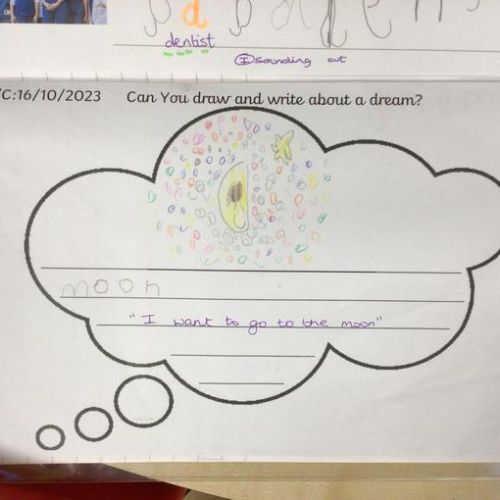 dentist
I sounding out
C:16/10/2023 Can You draw and write about a dream?
moon
"I want to go to the moon"